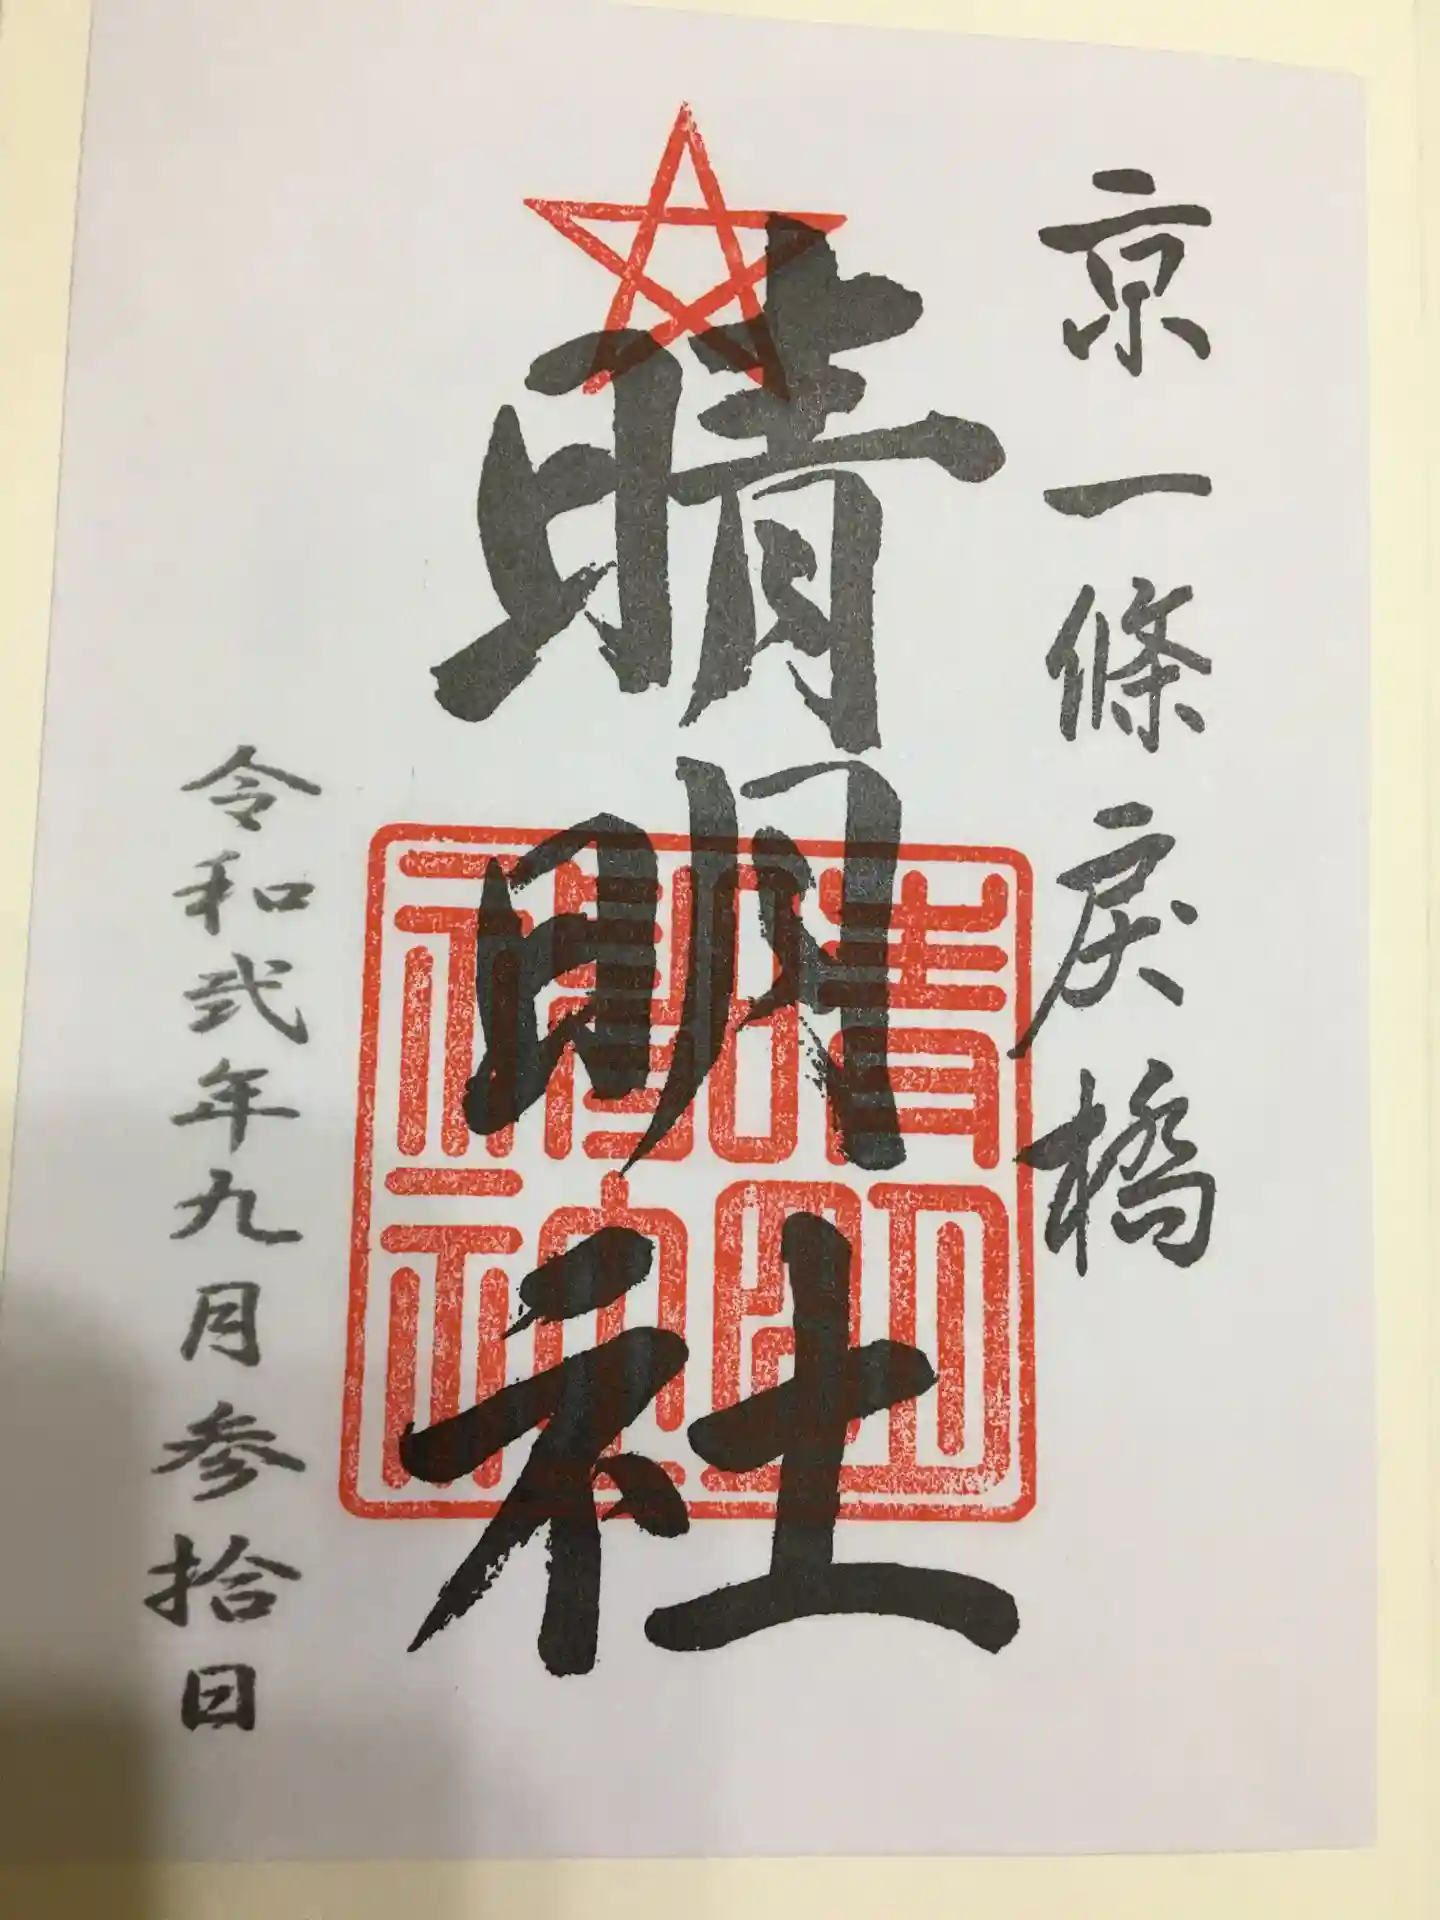 京一條戻橋
晴明社
晴明神社
令和弐年九月参拾日